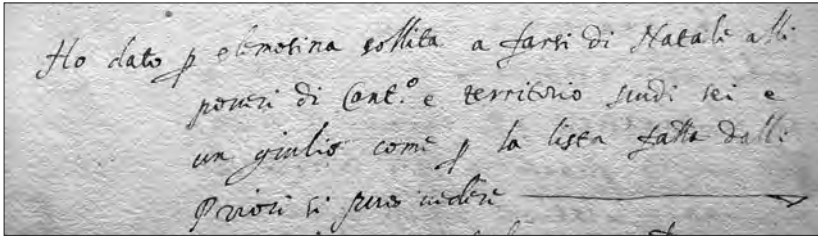 Ho dato p elemosina sollita a farsi di Natale alli
poveri di Cant.º e territorio scudi sei e
un giulio come p la lista fatta dalli
Priori si puro vedere